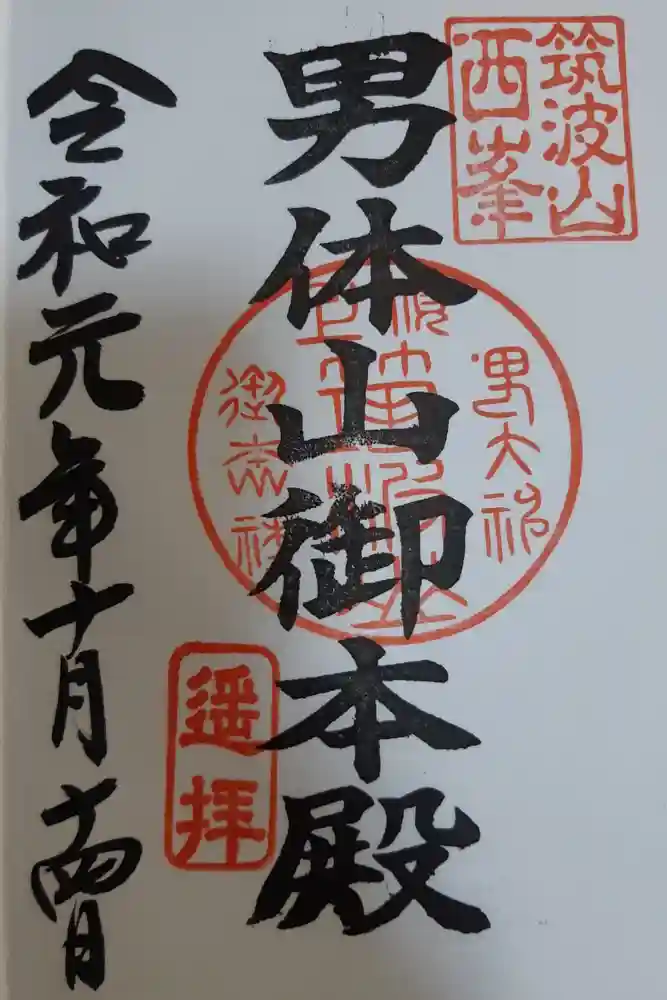 筑波山
西峯
男体山御本殿
遥拝
令和元年十月十四日